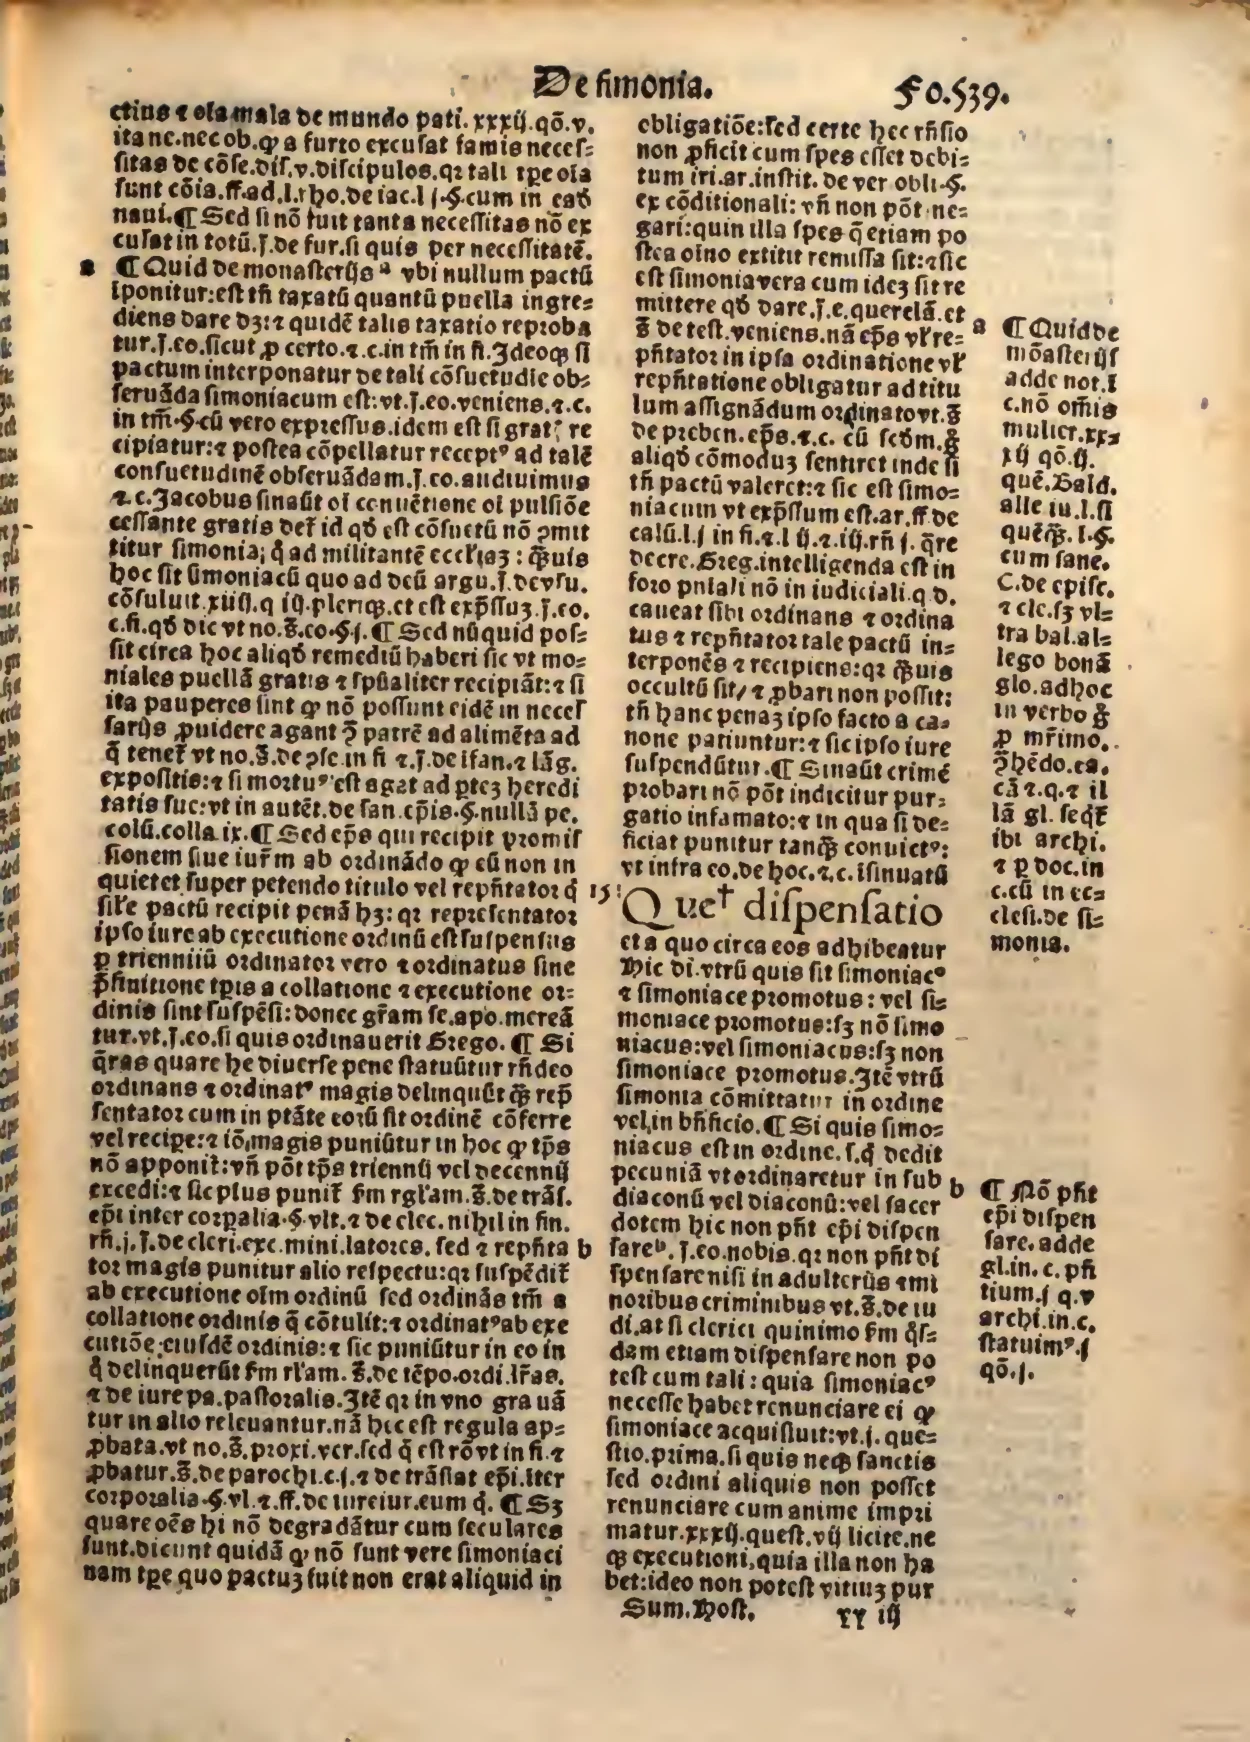 De simonia.
Fo.539.
ctius ⁊ oı̄a mala de mundo pati.xxxij.qō.v.
ita ne.nec ob.ꝙ a furto excusat famis necef⸗
sitas de cōse.dis.v.discipulos.qꝛ tali tꝑe oı̄a
sunt cōia.ff.ad.l.rho.de iac.l j.§.cum in eadē
naui.¶ Sed si nō fuit tanta necessitas nō ex
cusat in totū.j.de fur.si quis per necessitatē.
a ¶ Quid de monasterijs ᵃ vbi nullum pactū
īponitur:est tn̄ taxatū quantū puella ingre⸗
diens dare dꝫ:⁊ quidē talis taxatio reproba
tur.j.eo.sicut ꝓ certo.⁊.c.in tm̄ in fi.Ideoqꝫ si
pactum interponatur de tali cōsuetudīe ob⸗
seruāda simoniacum est:vt.j.eo.veniens.⁊.c.
in tm̄.§.cū vero expressus.idem est si gratꝰ re
cipiatur:⁊ postea cōpellatur receptꝰ ad talē
consuetudinē obseruādam.j.eo.audiuimus
⁊.c.Jacobus sinaūt oī conuētione oī pulsiōe
cessante gratis det̄ id qď est cōsuetū nō ꝯmit
titur simonia; q̄ ad militantē eccl̄iaꝫ : qᷓuis
hoc sit simoniacū quo ad deū argu.j.de vsu.
cōsuluit.xiiij.q iij.pleriqꝫ.et est exp̄ssuꝫ.j.eo.
c.fi.qď dic vt no.s̄.eo.§.j.¶ Sed nūquid pos⸗
sit circa hoc aliqď remediū haberi sic vt mo⸗
niales puellā gratis ⁊ sp̄ualiter recipiāt:⁊ si
ita pauperes sint ꝙ nō possunt eidē in necef
sarijs ꝓuidere agant ꝯ̄ patrē ad alimēta ad
q̄ tenet̄ vt no.s̄.de ꝯse.in fi ⁊.j.de ifan.⁊ lāg.
expositis:⁊ si mortuꝰ est agat ad ꝑteꝫ heredi
tatis sue:vt in autēt.de san.ep̄is.§.nullā pe.
colū.colla ix.¶ Sed ep̄s qui recipit promif
sionem siue iur̄m ab ordināndo ꝙ eū non in
quietet super petendo titulo vel rep̄ntator q̄
sil̄e pactū recipit penā hꝫ: qꝛ representator
ipso iure ab executione ordinū est suspensus
ꝑ trienniū ordinator vero ⁊ ordinatus sine
p̄finitione tꝑis a collatione ⁊ executione or⸗
dinis sint suspēsi:donec gr̄am se.apo.mereā
tur.vt.j.eo.si quis ordinauerit Grego.¶ Si
q̄ras quare he diuerse pene statuūtur rn̄deo
ordinans ⁊ ordinatꝰ magis delinquūt qᷓꝫ rep̄
sentator cum in ptāte eorū sit ordinē cōferre
vel recipe:⁊ iō magis puniūtur in hoc ꝙ tp̄s
nō apponit̄:vn̄ pōt tp̄s triennij vel decennij
excedi:⁊ sic plus punit̄ ẜm rgl̄am.s̄.de trās.
ep̄i inter corꝑalia.§.vlt.⁊ de elec.nihil in fin.
rn̄.j.j.de cleri.exc.mini.latores. sed ⁊ rep̄nta
tor magis punitur alio respectu:qꝛ suspēdit̄
ab executione oīm ordinū sed ordinās tm̄ a
collatione ordinis q̄ cōtulit:⁊ ordinatꝰ ab exe
cutiōe eiusdē ordinis:⁊ sic puniūtur in eo in
q̄ delinquerūt ẜm rl̄am. s̄.de tēpo.ordi.lr̄as.
⁊ de iure pa.pastoralis.Itē qꝛ in vno graua
tur in alio releuantur.nā hec est regula ap⸗
ꝓbata.vt no.s̄.proxi.ver.sed q̄ est rō vt in fi.⁊
ꝓbatur.s̄.de parochi.c.j.⁊ de trāslat ep̄i.iter
corporalia.§.vl.⁊.ff.de iureiur.eum q̄. ¶ Sꝫ
quare oēs hi nō degradātur cum seculares
sunt.dicunt quidā ꝙ nō sunt vere simoniaci
nam tꝑe quo pactuꝫ fuit non erat aliquid in
obligatiōe:sed certe hec rn̄sio
non ꝓficit cum spes esset debi⸗
tum iri.ar.instit. de ver obli.§.
ex cōditionali: vn̄ non pōt ne⸗
gari:quin illa spes q̄ etiam po
stea oīno extitit remissa sit:⁊ sic
est simonia vera cum ideꝫ sit re
mittere qď dare.j.e.querelā.et
s̄ de test.veniens.nā ep̄s vl̄ re⸗
p̄ntator in ipsa ordinatione vl̄
rep̄ntatione obligatur ad titu
lum assignādum ordinato vt.s̄
de preben.ep̄s.⁊.c. cū scďm.ḡ
aliqď cōmoduꝫ sentiret inde si
tn̄ pactū valeret:⁊ sic est simo⸗
niacum vt exp̄ssum est.ar.ff de
calū.l.j in fi.⁊.l ij.⁊.iij.rn̄ j. q̄re
decre.Greg.intelligenda est in
foro pn̄iali nō in iudiciali.q d.
caueat sibi ordinans ⁊ ordina
tus ⁊ rep̄ntator tale pactū in⸗
terponēs ⁊ recipiens:qꝛ qᷓuis
occultū sit/ ⁊ ꝓbari non possit:
tn̄ hanc penaꝫ ipso facto a ca⸗
none patiuntur:⁊ sic ipso iure
suspendūtur.¶ Sinaūt crimē
probari nō pōt indicitur pur⸗
gatio infamato:⁊ in qua si de⸗
ficiat punitur tanqᷓꝫ conuictꝰ:
vt infra eo.de hoc.⁊.c.isinuatū
15 Que† dispensatio
et a quo circa eos adhibeatur
Hic di.vtrū quis sit simoniacꝰ
⁊ simoniace promotus: vel si⸗
moniace promotus:sꝫ nō simo
niacus:vel simoniacus:sꝫ non
simoniace promotus.Itē vtrū
simonia cōmittatur in ordine
vel in bn̄ficio.¶ Si quis simo⸗
niacus est in ordine.s.q̄ dedit
pecuniā vt ordinaretur in sub
diaconū vel diaconū:vel sacer
dotem hic non pn̄t ep̄i dispen
b sareᵇ. j.eo.nobis.qꝛ non pn̄t di
spensare nisi in adulterijs ⁊ mi
noribus criminibus vt.s̄.de iu
di.at si clerici quinimo ẜm qᷓs⸗
dam etiam dispensare non po
test cum tali: quia simoniacꝰ
necesse habet renunciare ei ꝙ
simoniace acquisiuit:vt.j. que⸗
stio.prima.si quis neqꝫ sanctis
sed ordini aliquis non posset
renunciare cum anime impri
matur.xxxij.quest.vij licite.ne
qꝫ executioni,quia illa non ha
bet:ideo non potest vitiuꝫ pur
a ¶ Quid de
mōasterijs
adde not.ī
c.nō om̄is
mulier.xx⸗
xij qō.ij.
quē.Bald.
alle iu.l.si
quēqᷓꝫ.l.§.
cum sane.
C.de episc.
⁊ cle.sꝫ vl⸗
tra bal.al⸗
lego bonā
glo.ad hoc
in verbo ḡ
ꝓ mr̄imo.
ꝯ̄hēdo.ea.
cā ⁊.q.⁊ il
lā gl. seqt̄
ibi archi.
⁊ ꝑ doc.in
c.cū in ec⸗
clesi.de si⸗
monia.
b ¶ Nō pn̄t
ep̄i dispen
sare. adde
gl.in. c. pn̄
tium.j q.v
archi.in.c.
statuimꝰ.j
qō.j.
Sum.Host.
YY iij